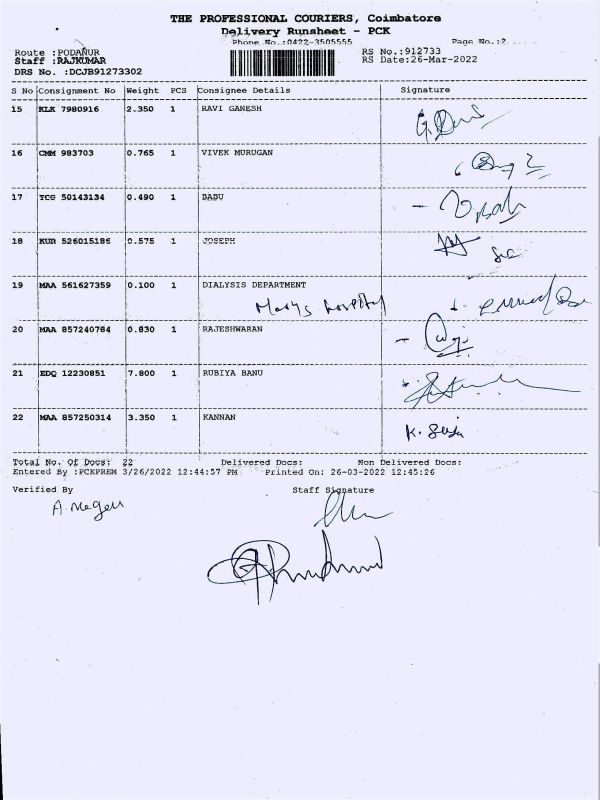 THE PROFESSIONAL COURIERS, Coimbatore
Delivery Runsheet - PCK
Phone No.:0422-3505555 Page No.:2
Route :PODANUR RS No.:912733
Staff :RAJKUMAR RS Date:26-Mar-2022
DRS No. :DCJB91273302
S No Consignment No Weight PCS Consignee Details Signature
15 KLK 7980916 2.350 1 RAVI GANESH
16 CMM 983703 0.765 1 VIVEK MURUGAN
17 TCG 50143134 0.490 1 BABU
18 KUR 526015186 0.575 1 JOSEPH
19 MAA 561627359 0.100 1 DIALYSIS DEPARTMENT
Marys hospital
20 MAA 857240784 0.830 1 RAJESHWARAN
21 EDQ 12230851 7.800 1 RUBIYA BANU
22 MAA 857250314 3.350 1 KANNAN
K.
Total No. Of Docs: 22 Delivered Docs: Non Delivered Docs:
Entered By :PCKPREM 3/26/2022 12:44:57 PM Printed On: 26-03-2022 12:45:26
Verified By Staff Signature
A.